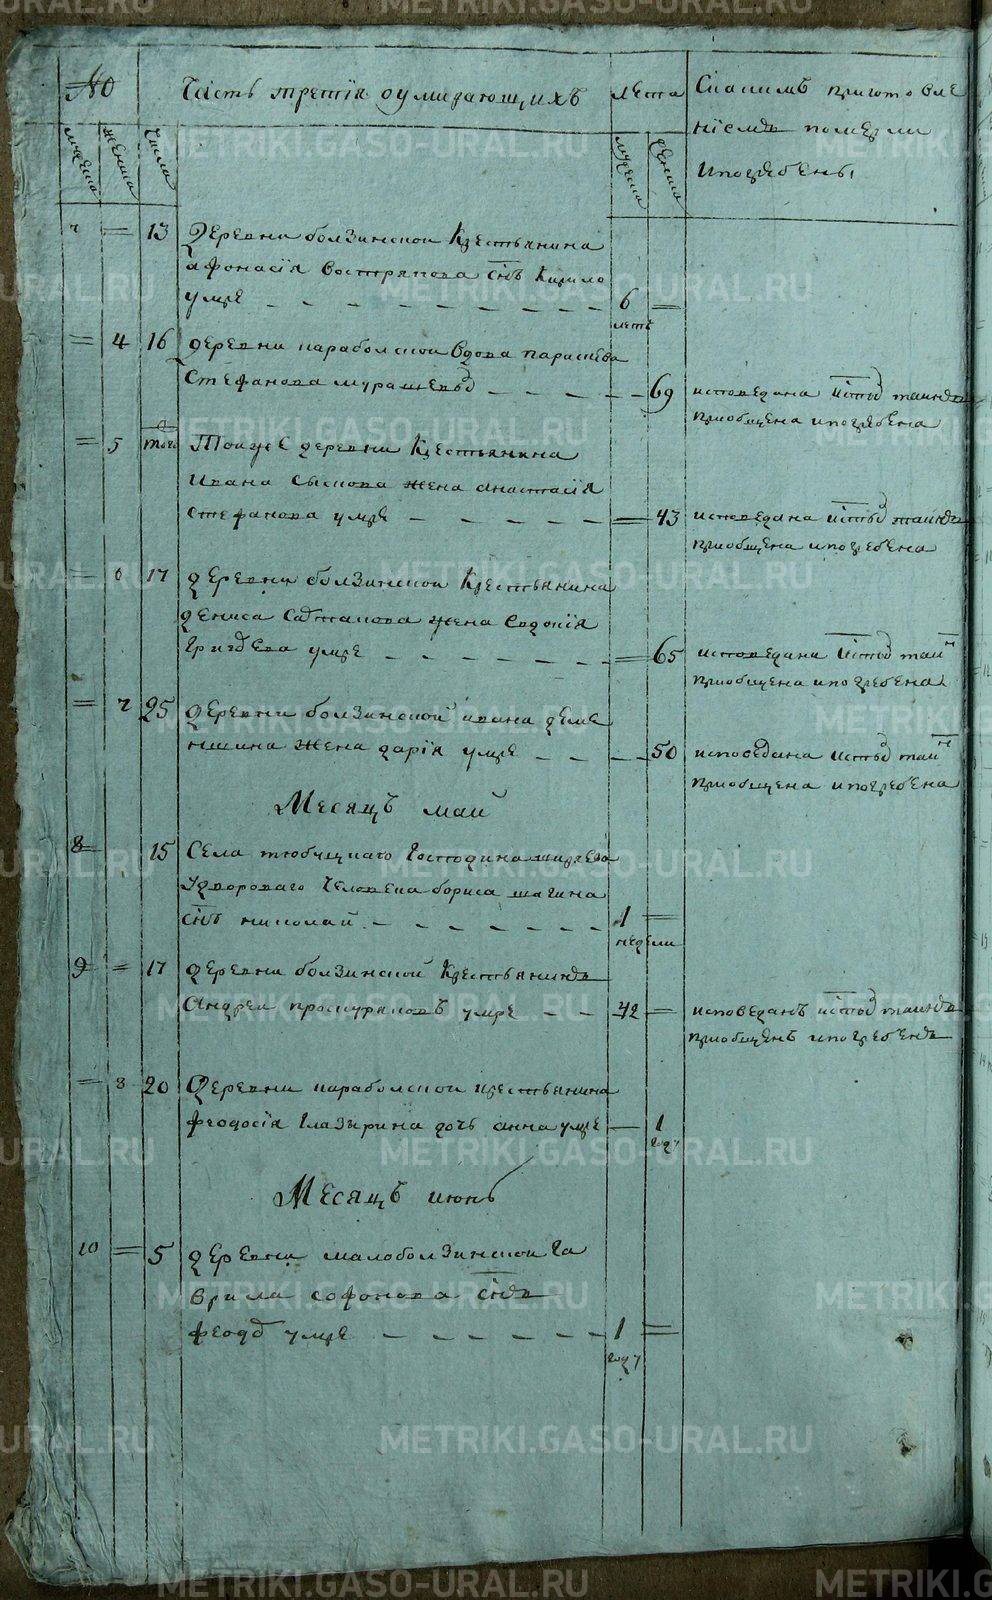 № Часть третїя о умирающихъ лета Съ какимъ приготовле
нїемъ померли
и погребены
мужеска женска числа мужеска женска
7 = 13 деревни болзинской крестьянина
афонасїя Вострякова снъ Кирило
умре 6 =
летъ
= 4 16 деревни караболской вдова параскева
Стефанова 69 исповедана и стыхъ таинъ
приобщена и погребена
= 5 того Той же деревни крестьянина
Ивана Сыскова жена Анастасїя
стефанова умре = 43 исповедана и стыхъ таинъ
приобщена и погребена
= 6 17 деревни болзинской крестьянина
дениса жена Евдокїя
умре = 65 исповедана и стыхъ таин
приобщена и погребена
= 7 25 деревни болзинской ивана деме
ншина жена дарїя умре 50 исповедана и стыхъ таин
приобщена и погребена
Месяцъ май
8 15 Села тюбуцкаго господина ширяева
у двороваго человека бориса шагина
снъ николай 1 =
недели
9 = 17 деревни болзинской крестьянинъ
Андрей проскуряковъ умре 72 = исповеданъ и стыхъ таинъ
приобщенъ и погребенъ
= 8 20 Деревни караболской крестьянина
феодосїя Глазырина дочь анна умре 1
году
Месяцъ июнь
10 = 5 деревни малоболзинской Га
врила софонова снъ
феодъ умре 1 =
году
METRIKI.GASO-URAL.RU